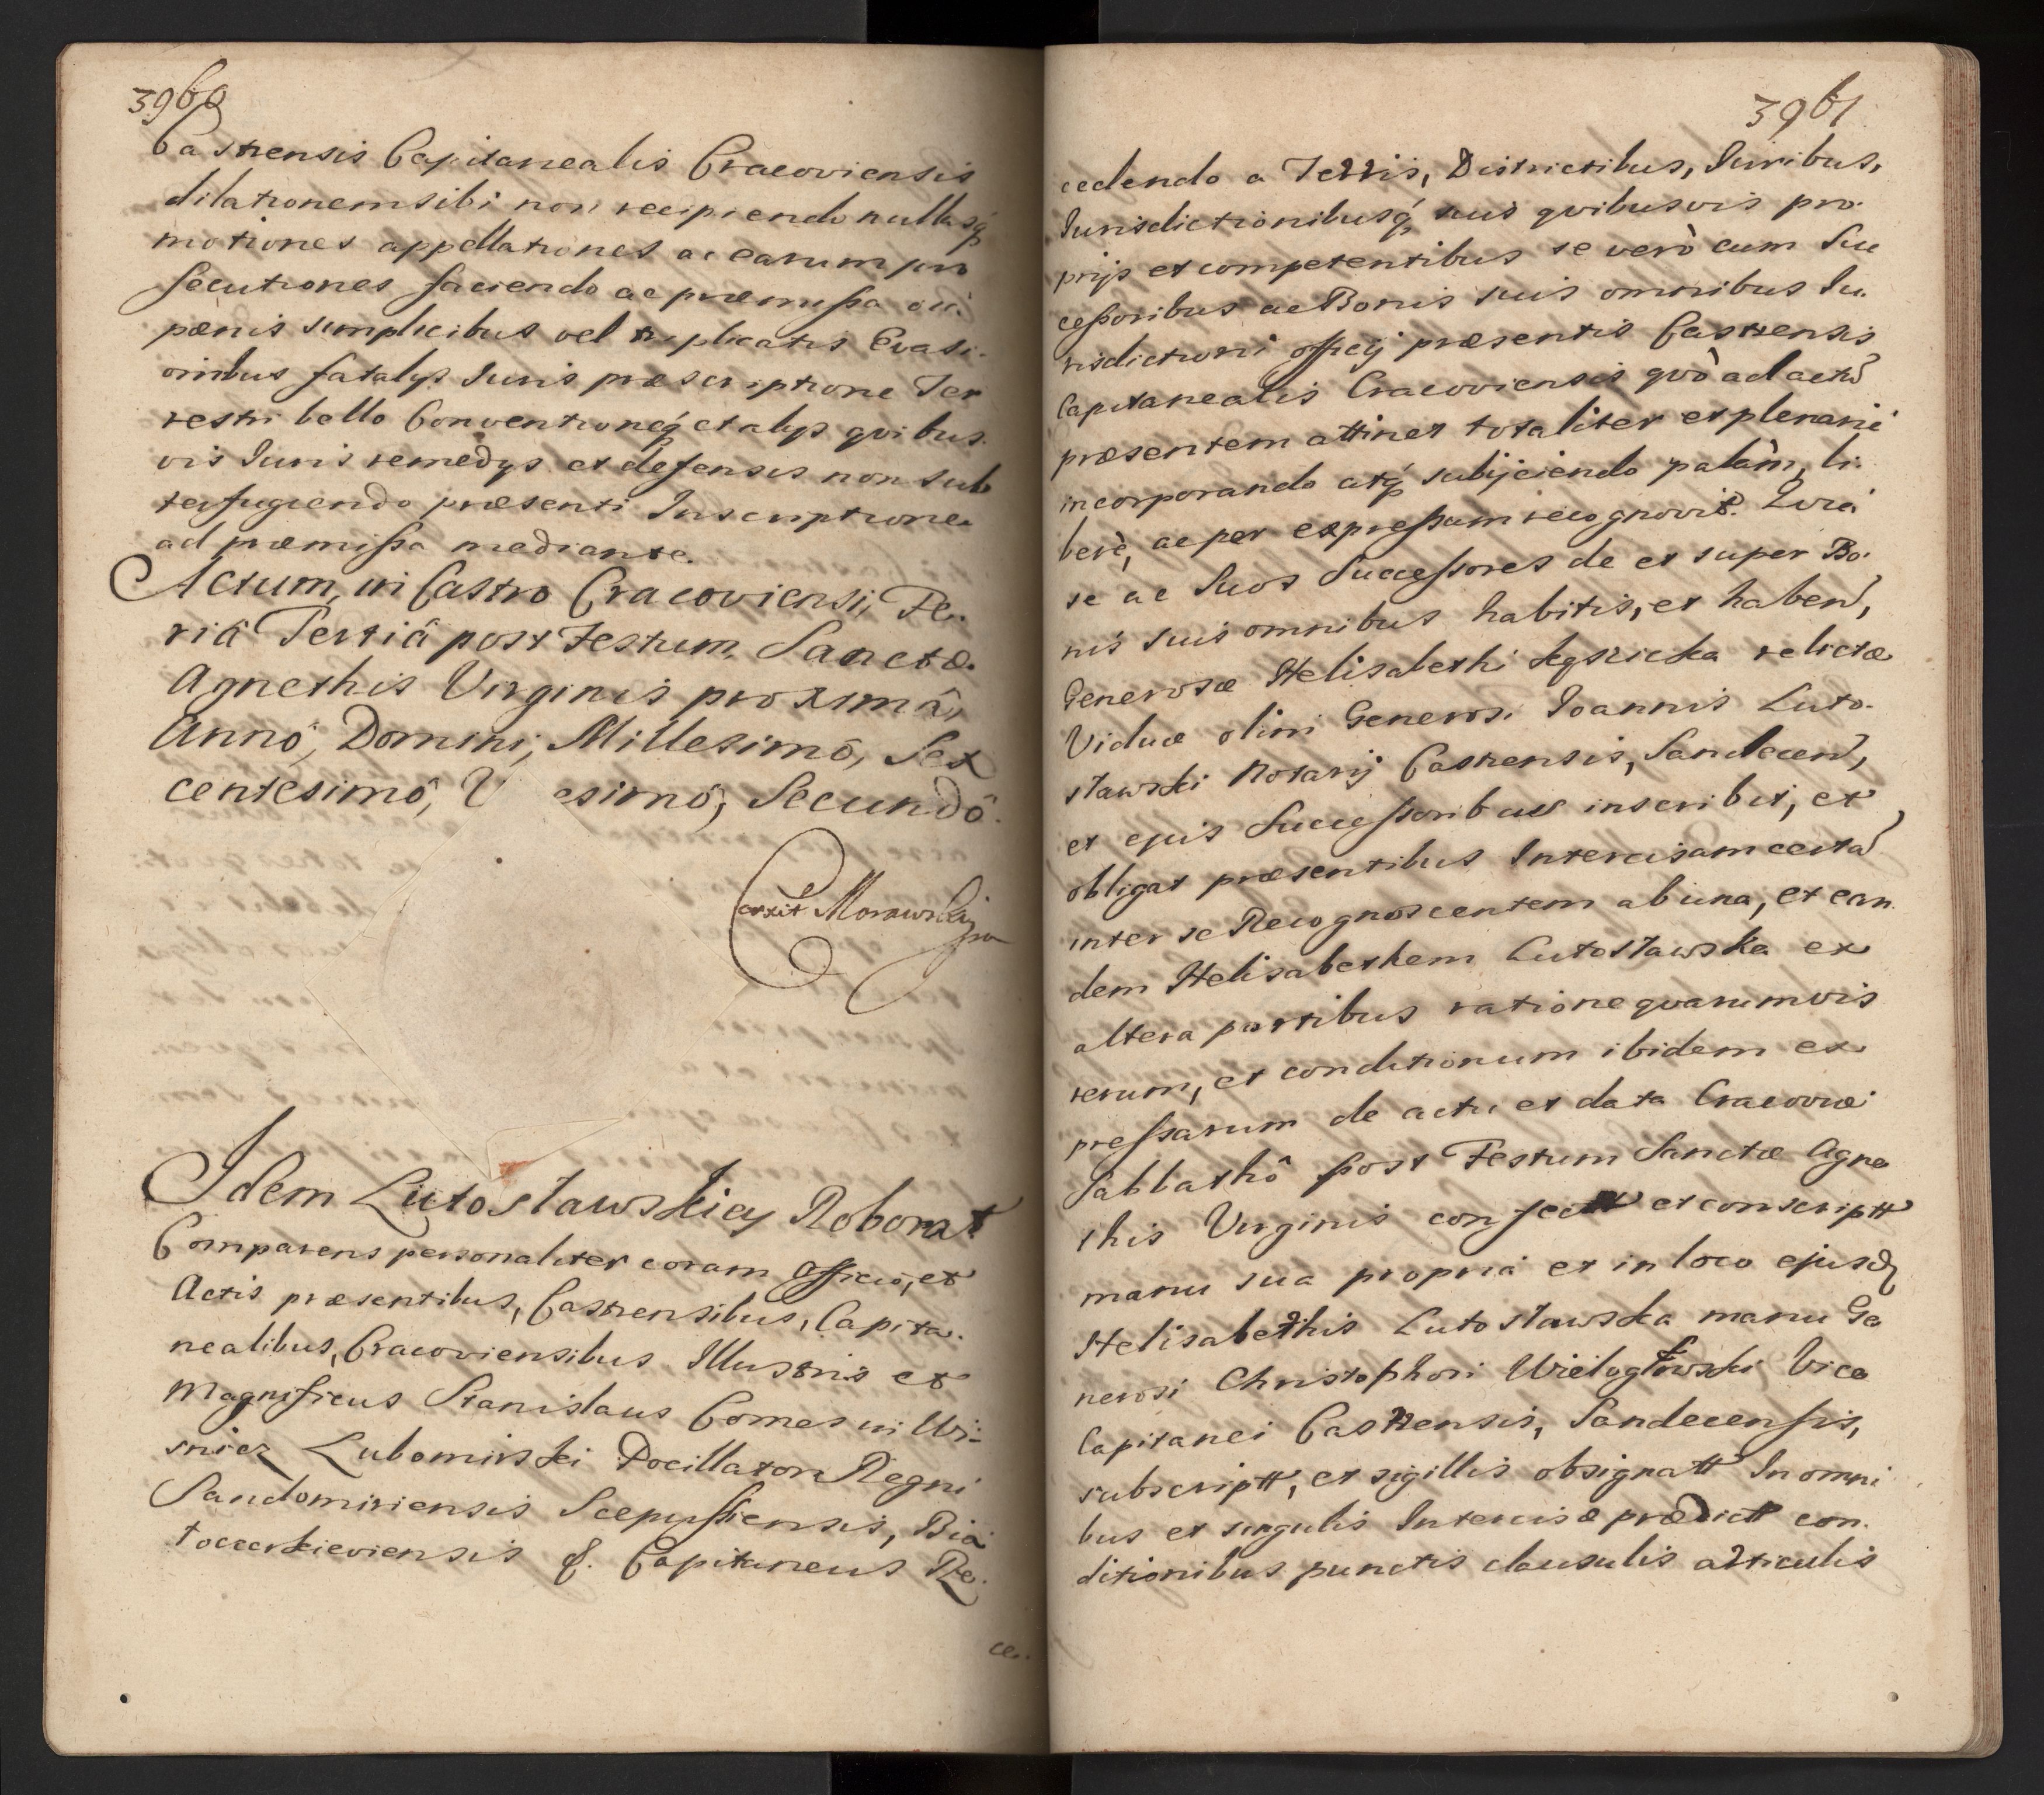 3960
Castrensis Capitanealis Cracoviensis
dilationem sibi non recipiendo nullasq́
motiones appellationes ac earum pro
secutiones faciendo ac præmissa oi.
pænis simplicibus vel triplicatis Evasi.
onibus fatalijs Iuris præscriptione Ter
restri bello Conventioneq́ et alijs qvibus.
vis Iuris remedys et defensis non sub
terfugiendo præsenti Inscriptione
ad præmissa mediante.
Actum, in Castro Cracoviensi, Fe.
riâ Tertiâ post Festum, Sanctæ.
Agnethis Virginis proximâ,
Annô, Domini, Millesimô, Sex
centesimô, V esimô, Secundô.
Correxit Morawski
mp
Idem Lutosławskiey Roborat
Comparens personaliter coram Officiô, et
Actis præsentibus, Castrensibus, Capita.
nealibus, Cracoviensibus Illustris et
Magnificus Stanislaus Comes in Wi:
snicz Lubomirski Pocillator Regni
Sandomiriensis Scepussiensis, Bia
łocerkieviensis &. Capitaneus Re.
ce.
3961
cedendo a Terris, Districtibus, Iuribus,
Iurisdictionibusq́ suis qvibusvis pro.
prijs et competentibus se verò cum Suc
cessoribus ac Bonis suis omnibus Iu.
risdictioni officij præsentis Castrensis
Capitanealis Cracoviensis qvò ad actũ
præsentem attinet totaliter et plenariè
incorporando atq́ subijciendo palàm, li.
berè, ac per expressum recognovit. Qvia
se ac Suos Successores de et super Bo.
nis suis omnibus habitis, et haben,
Generosæ Helisabethi Łęskicka relictæ
Viduæ olim Generosi Ioannis Luto.
sławski Notarij Castrensis, Sandecen,
et ejus Successoribus inscribit, et
obligat præsentibus Intercisam certã
inter se Recognoscentem ab una, et ean.
dem Helisabethem Lutosławska ex
altera partibus ratione qvarumvis
rerum, et conditionum ibidem ex
pressarum de actu et data Cracoviæ
Sabbathô post Festum Sanctæ Agne
this Virginis confectt et conscriptt
manu sua propriâ et in loco ejusd
Helisabethis Lutosławska manu Ge
nerosi Christophori Wielogłowski Vice
Capitanei Castrensis, Sandecensis,
subscriptt, et sigillis obsignatt In omni
bus et singulis Intercisæ prædictt con.
ditionibus punctis clausulis articulis